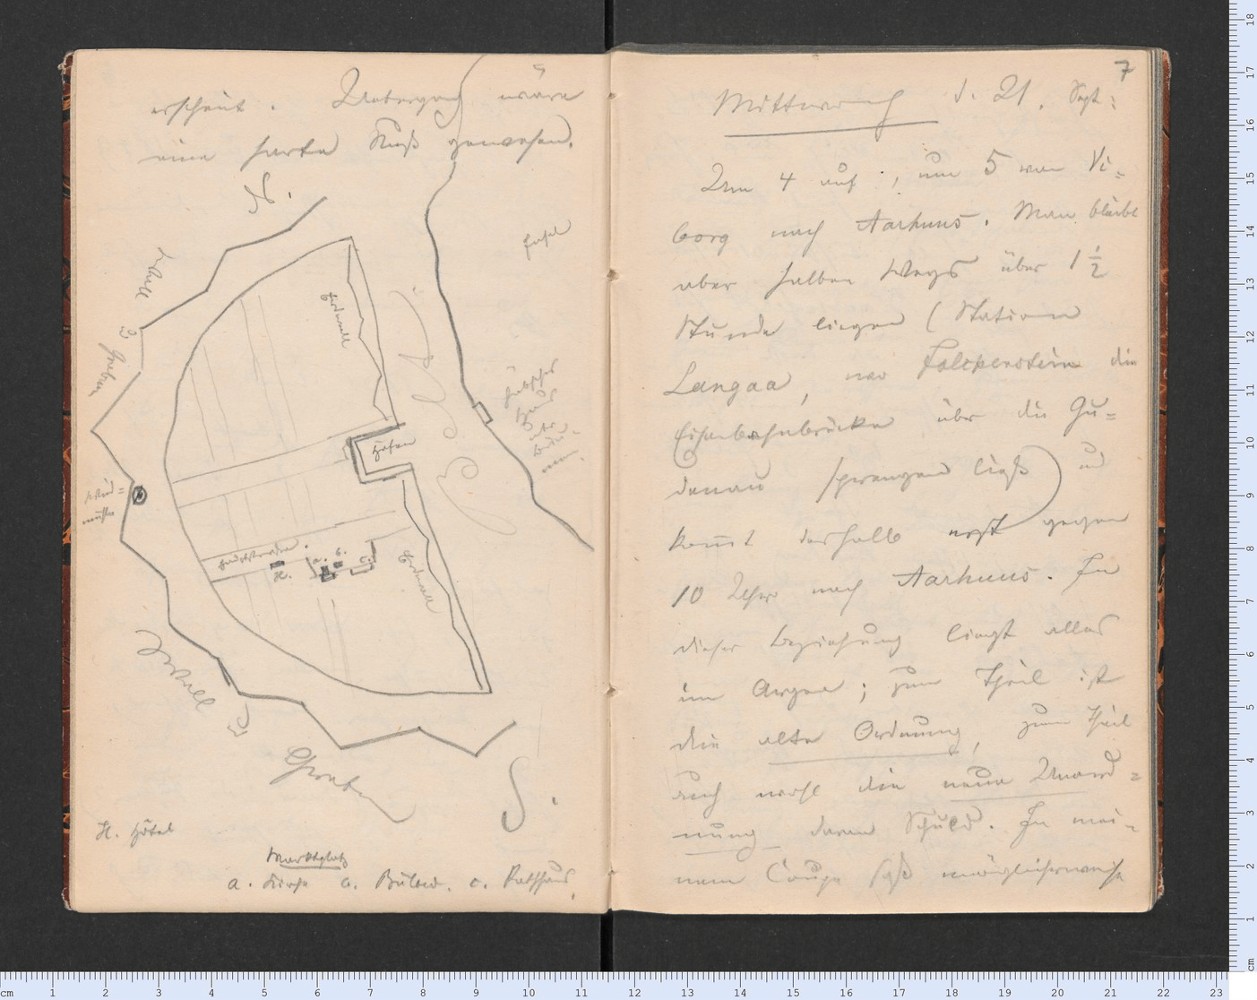 erscheint. Uebergang wäre
eine harte Nuß gewesen.
N.
Insel
Wall
u Graben
Erdwall
Hafen
Wind=
mühle
Hauptstraße.
H. a. b. c.
Erdwall
Wall u
Graben
S.
H. Hôtel
Marktplatz
a. Kirche b. Bülow. c. Rathhaus.
7
Mittwoch d. 21. Sept:
Um 4 auf, um 5 von Vi=
borg nach Aarhuus. Man bleibt
aber halben Wegs über 1 1/2
Stunde liegen (Station
Langaa, wo Falckenstein die
Eisenbahnbrücke über die Gu=
denau sprengen ließ) und
kom̄t deshalb erst gegen
10 Uhr nach Aarhuus. In
dieser Beziehung liegt alles
im Argen; zum Theil ist
die alte Ordnung, zum Theil
auch wohl die neue Unord=
nung daran Schuld. In mei=
nem Coupé saß möglicherweise